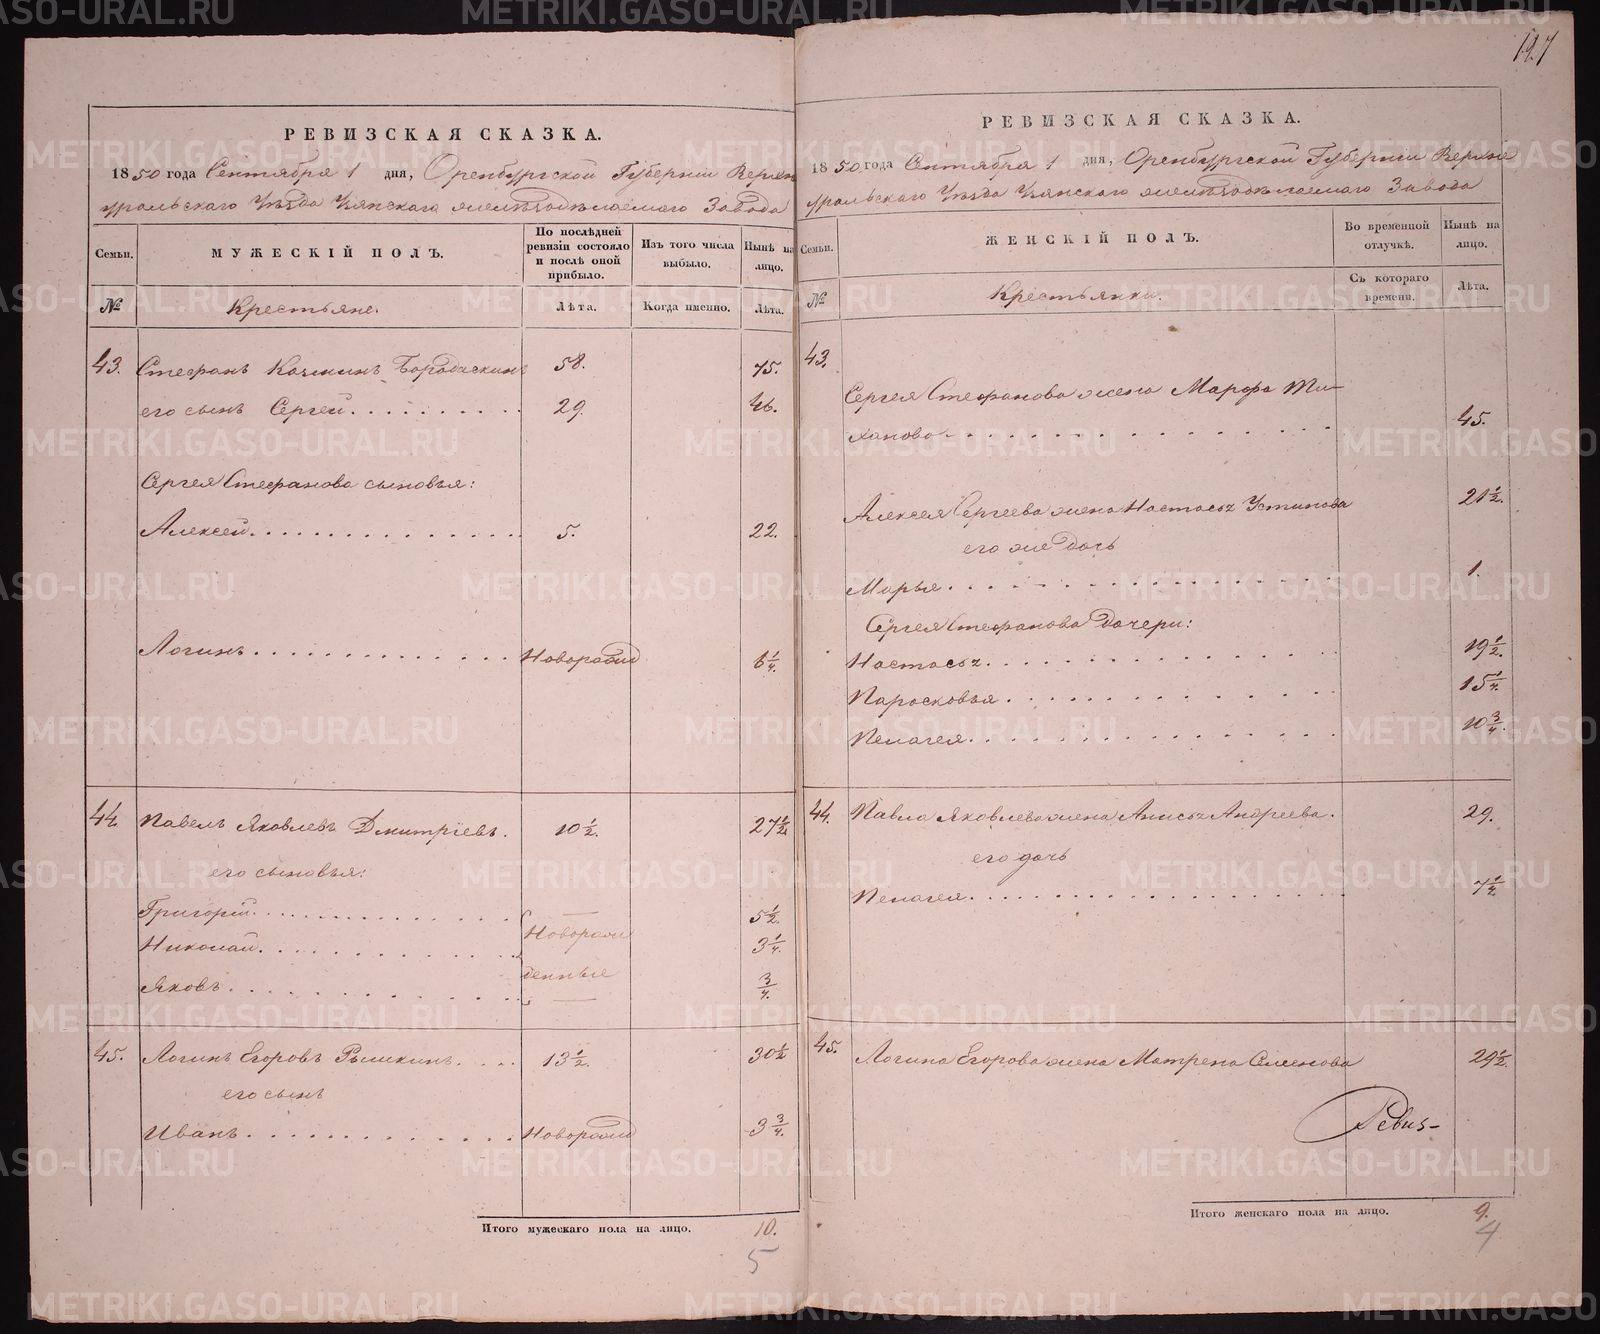 127
РЕВИЗСКАЯ СКАЗКА.
1850 года Сентября 1 дня, Оренбургской Губернии Верхне
уральскаго Уѣзда Узянскаго желѣзодѣлаемаго Завода
Семьи.
МУЖЕСКІЙ ПОЛЪ.
По послѣдней ревизіи состояло и послѣ оной прибыло.
Изъ того числа выбыло.
Нынѣ на лицо.
№
Крестьяне.
Лѣта.
Когда именно.
Лѣта.
43. Стефанъ Козминъ 58. 75.
его сынъ Сергей 29. 46.
Сергея Стефанова сыновья:
Алексей 5. 22.
Логинъ Новорожд 6 1/4.
44. Павелъ Яковлевъ Дмитріевъ. 10 1/2. 27 1/2
его сыновья:
Григорій 5 1/2.
Николай Новорож 3 1/4.
Яковъ денные 3/4.
45. Логинъ Егоровъ Рышкинъ 13 1/2. 30 1/2
его сынъ
Иванъ Новорожд 3 3/4.
Итого мужескаго пола на лицо. 10.
5
РЕВИЗСКАЯ СКАЗКА.
1850 года Сентября 1 дня, Оренбургской Губерніи Верхне
уральскаго Уѣзда Узянскаго желѣзодѣлаемаго Завода
Семьи.
ЖЕНСКІЙ ПОЛЪ.
Во временной отлучкѣ.
Нынѣ на лицо.
№
Крестьянки.
Съ котораго времени.
Лѣта.
43.
Сергея Стефанова жена Марфа Ти-
ханова 45.
Алексея Сергеева жена Настасья Устинова 21 1/2.
его же дочь
Марья 1.
Сергея Стефанова дочери:
Настасья 19 1/2.
Парасковья 15 1/4.
Пелагея 10 3/4.
44. Павла Яковлева жена Анисья Андреева. 29.
его дочь
Пелагея 7 1/2
45. Логина Егорова жена Матрена Семенова 29 1/2.
Ревиз-
Итого женскаго пола на лицо. 9.
4
METRIKI.GASO-URAL.RU